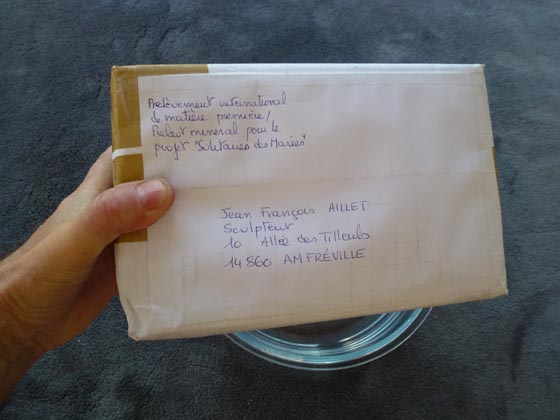 Prélèvement international
de matière première/
Rebut minéral pour le
projet "Solitaires des Marées"
Jean François AILLET
Sculpteur
10 Allée des Tilleuls
14860 AMFRÉVILLE